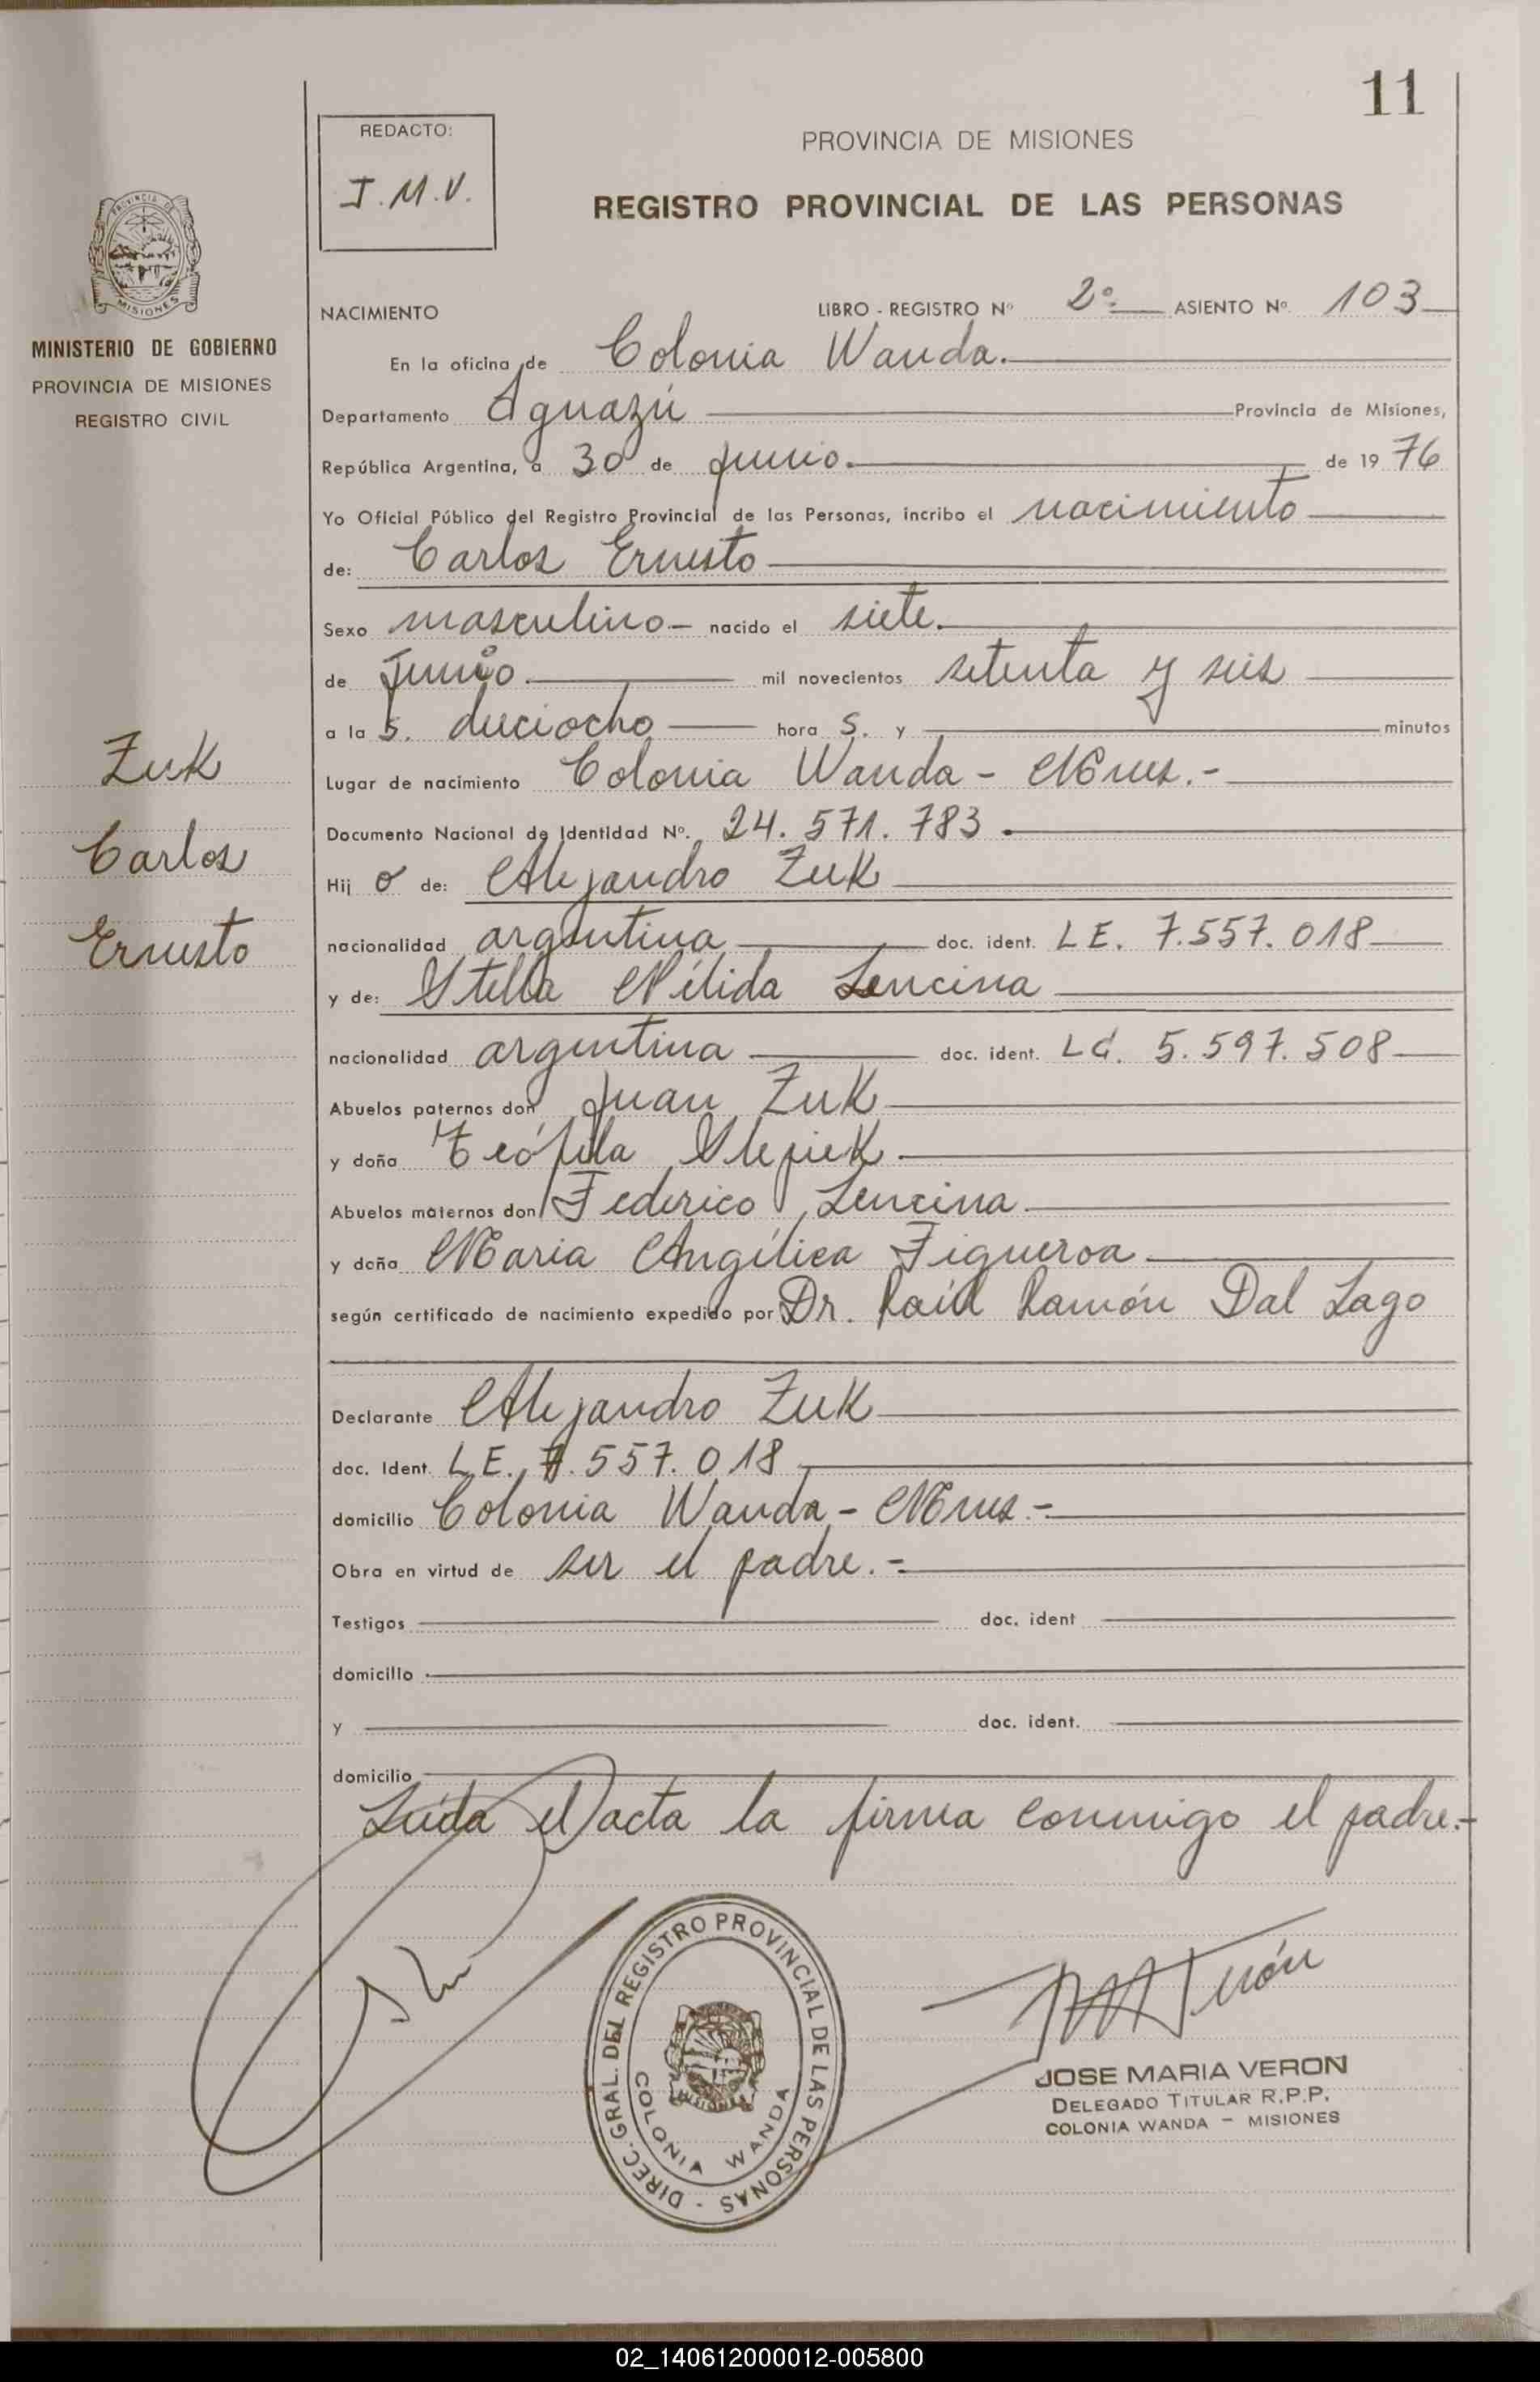 11
REDACTO:
J.M.V.
PROVINCIA DE MISIONES
REGISTRO PROVINCIAL DE LAS PERSONAS
MISIONES
MINISTERIO DE GOBIERNO
PROVINCIA DE MISIONES
REGISTRO CIVIL
NACIMIENTO LIBRO - REGISTRO Nº 2º ASIENTO Nº 103
En la oficina de Colonia Wanda.
Departamento Iguazú Provincia de Misiones,
República Argentina, a 30 de junio. de 19 76
Yo Oficial Público del Registro Provincial de las Personas, incribo el nacimiento
de: Carlos Ernesto
Sexo masculino - nacido el siete.
de Junio. mil novecientos setenta y seis
a la s. dieciocho hora s. y minutos
Lugar de nacimiento Colonia Wanda - Mnes.-
Documento Nacional de Identidad Nº. 24.571.783.
Hij o de: Alejandro Zuk
nacionalidad argentina doc. ident. LE. 7.557.018
y de: Stella Nélida Lencina
nacionalidad argentina doc. ident. LC. 5.597.508
Abuelos paternos don Juan Zuk
y doña Teófila Slepiek
Abuelos maternos don Federico Lencina
y doña Maria Angélica Figueroa
según certificado de nacimiento expedido por Dr. Raúl Ramón Dal Lago
Declarante Alejandro Zuk
doc. Ident. L.E. 7.557.018
domicilio Colonia Wanda - Mnes.-
Obra en virtud de ser el padre.-
Testigos doc. ident
domicilio
y doc. ident.
domicilio
Leída el acta la firma conmigo el padre.-
Zuk
Carlos
Ernesto
DIREC. GRAL. DEL REGISTRO PROVINCIAL DE LAS PERSONAS -
MISIONES
COLONIA WANDA
JOSE MARIA VERON
DELEGADO TITULAR R.P.P.
COLONIA WANDA - MISIONES
02_140612000012-005800